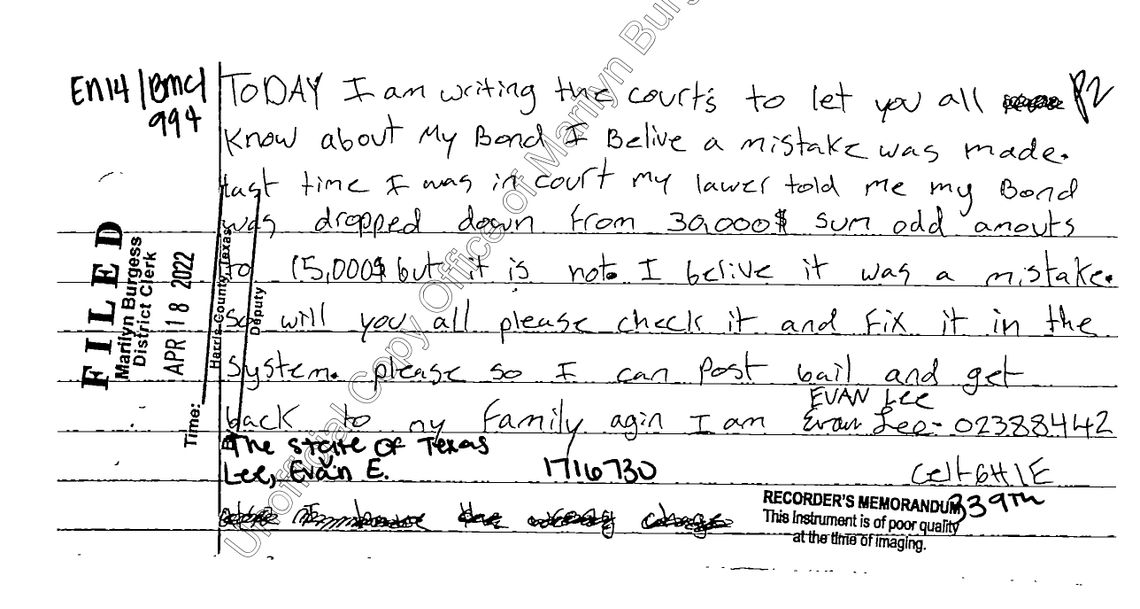 En14/Bmc1
994
TODAY I am writing the courts to let you all P2
Know about My Bond I Belive a mistake was made.
last time I was in court my lawer told me my Bond
was dropped down from 30,000$ sum odd amouts
to 15,000$ but it is not. I belive it was a mistake.
So will you all please check it and fix it in the
System. please so I can Post bail and get
EVAN Lee
back to my Family agin I am Evan Lee - 02388442
The State of Texas
Lee, Evan E. 1716730 Cell-6H1E
339TH
FILED
Marilyn Burgess
District Clerk
APR 18 2022
Time:
Harris County, Texas
Deputy
RECORDER'S MEMORANDUM
This Instrument is of poor quality
at the time of imaging.
Unofficial Copy Office of Marilyn Burg